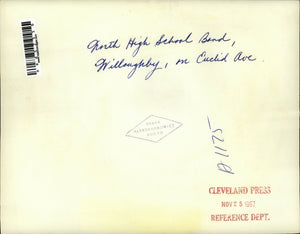 North High School Band,
Willoughby, on Euclid Ave.
A1125
CLEVELAND PRESS
NOV 25 1967
REFERENCE DEPT.